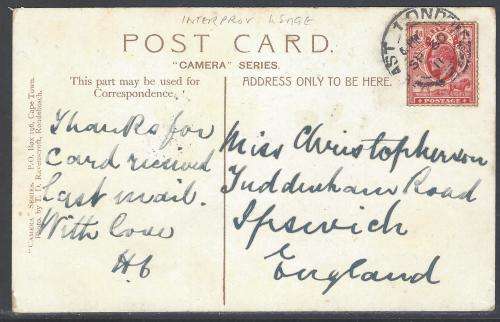 INTERPROV USAGE
POST CARD.
"CAMERA" SERIES.
This part may be used for
Correspondence.
ADDRESS ONLY TO BE HERE.
Thanks for
Card received
Last mail.
With love
Miss Christopherson
Tuddenham Road
Ipswich
England
"CAMERA" Series. P.O. Box 1198, Cape Town.
Photo. by T. D. Ravenscroft, Rondebosch.
POSTAGE